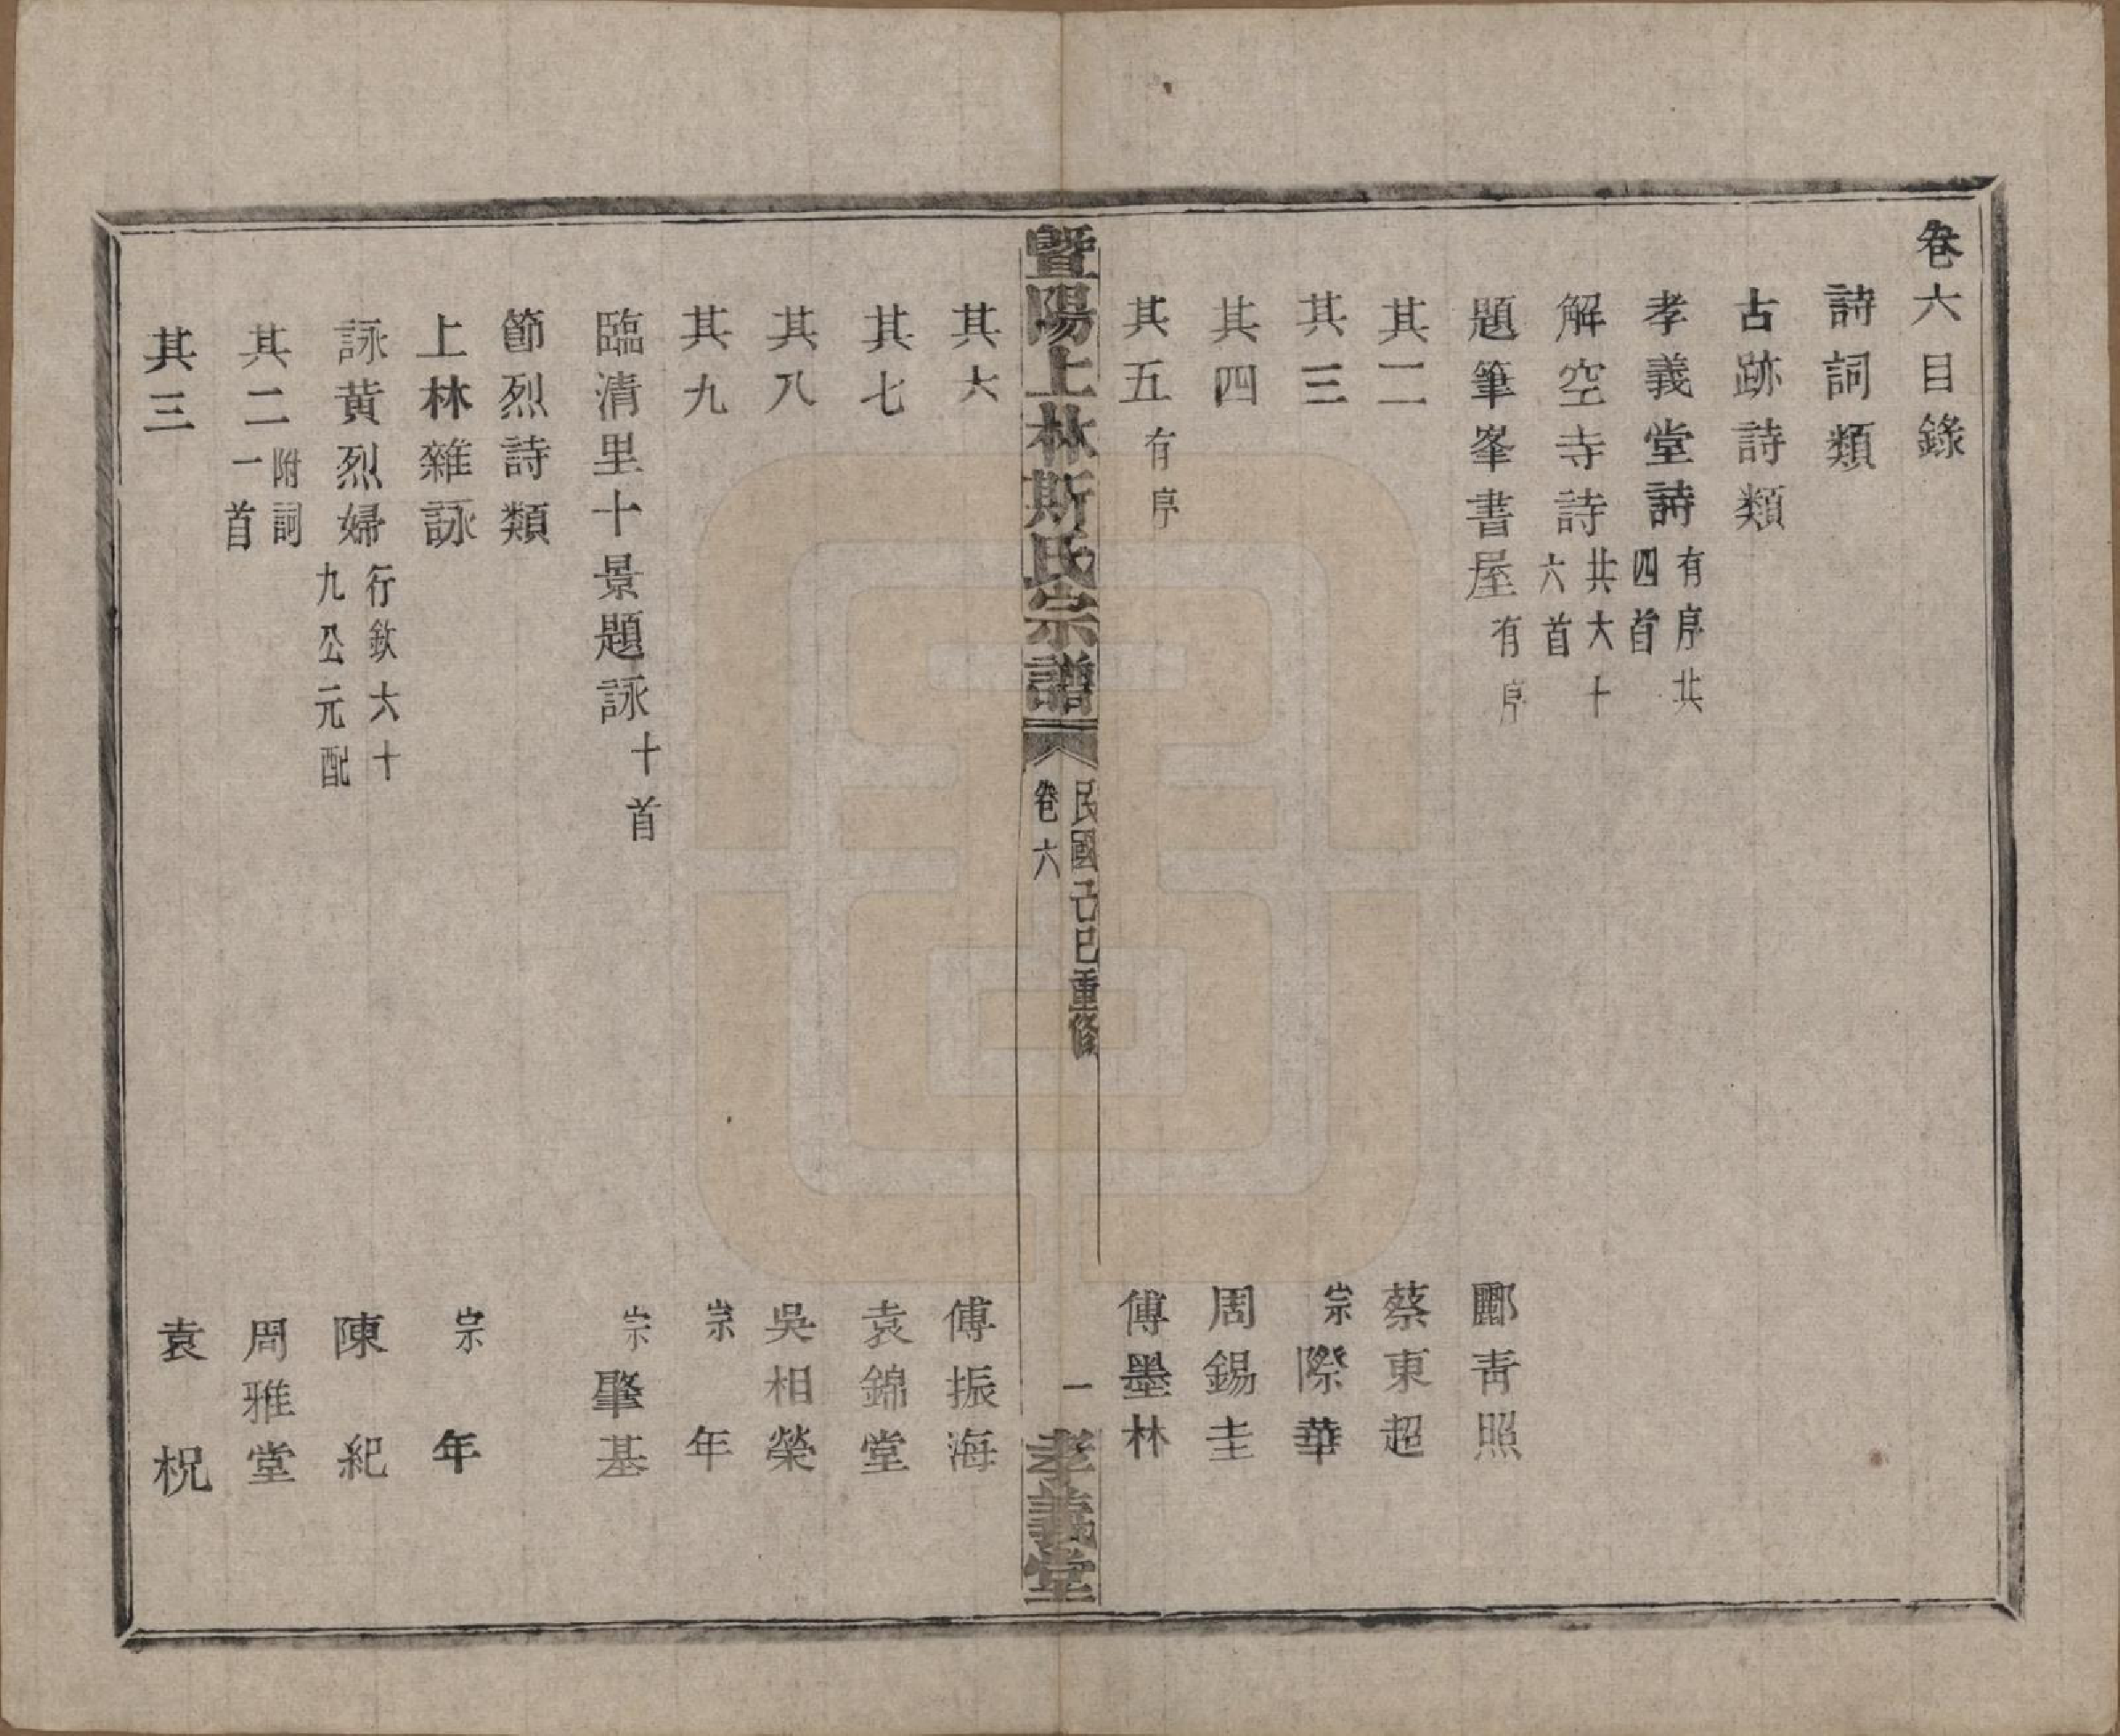 卷六目錄
詩詞類
古跡詩類
孝義堂詩 有序共四首
解空寺詩 共大十六首
題筆峯書屋 有序 酈青照
其二 蔡東超
其三 宗際華
其四 周錫圭
其五 有序 傅墨林
暨陽上林斯氏宗譜 民國己巳重修 卷六 一 孝義堂
其六 傅振海
其七 袁錦堂
其八 吳相榮
其九 宗年
臨清里十景題詠 十首 宗肇基
節烈詩類
上林雜詠 宗年
詠黃烈婦 行欽六十九公元配 陳紀
其二 附詞一首 周雅堂
其三 袁柷